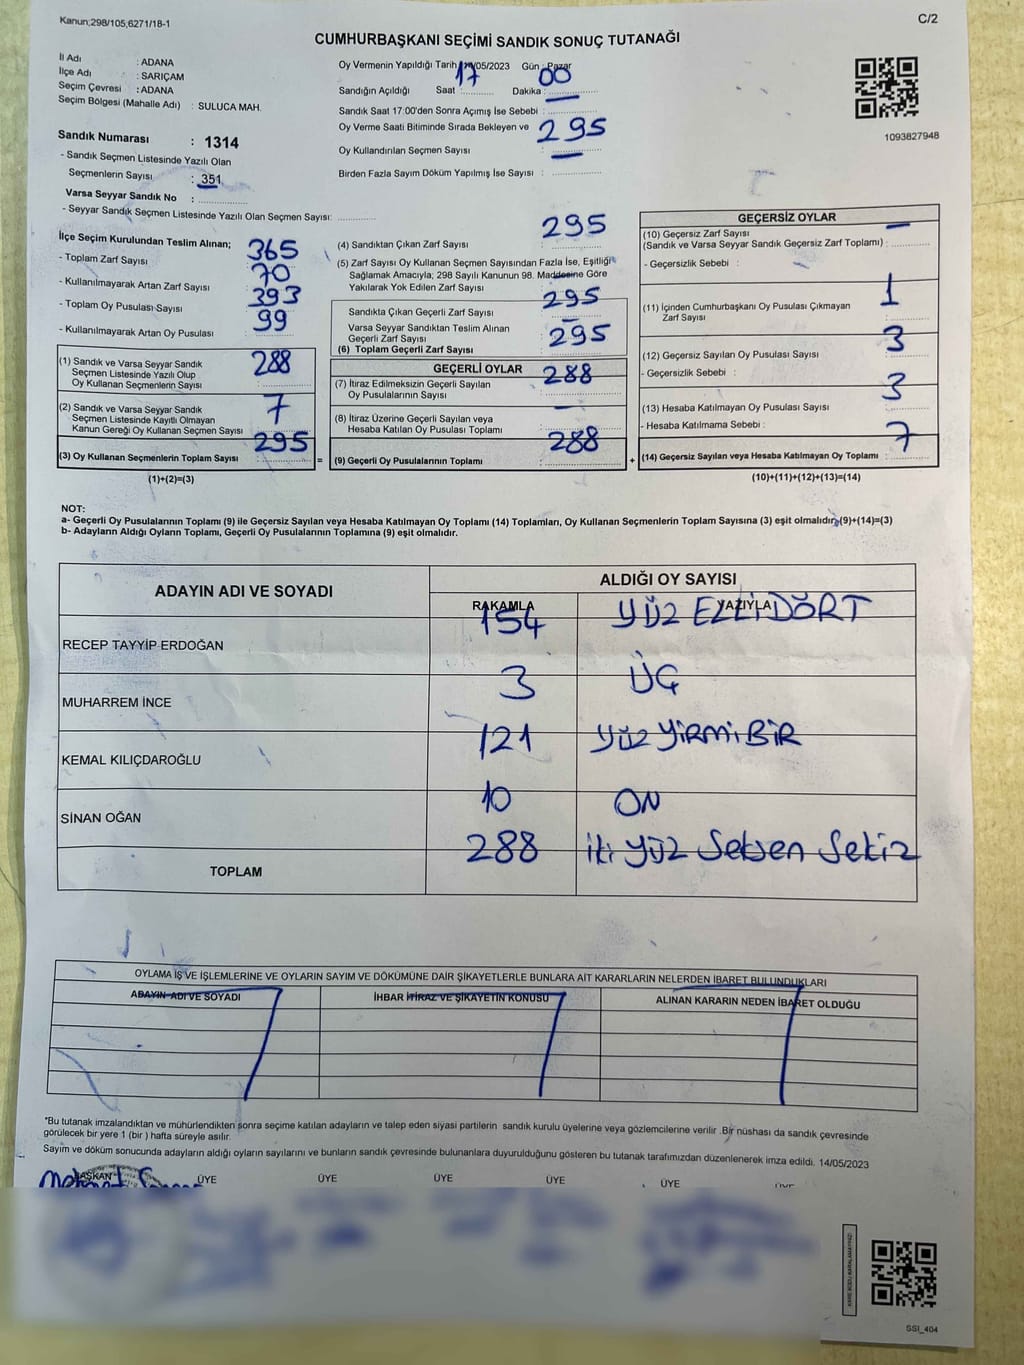 Kanun;298/105,6271/18-1
C/2
CUMHURBAŞKANI SEÇİMİ SANDIK SONUÇ TUTANAĞI
İl Adı : ADANA
İlçe Adı : SARIÇAM
Seçim Çevresi : ADANA
Seçim Bölgesi (Mahalle Adı) : SULUCA MAH.
Sandık Numarası : 1314
- Sandık Seçmen Listesinde Yazılı Olan
Seçmenlerin Sayısı : 351
Varsa Seyyar Sandık No :
- Seyyar Sandık Seçmen Listesinde Yazılı Olan Seçmen Sayısı:
Oy Vermenin Yapıldığı Tarih /05/2023 Gün : Pazar
Sandığın Açıldığı Saat 17 Dakika : 00
Sandık Saat 17:00'den Sonra Açımış İse Sebebi :
Oy Verme Saati Bitiminde Sırada Bekleyen ve 295
Oy Kullandırılan Seçmen Sayısı :
Birden Fazla Sayım Döküm Yapılmış İse Sayısı :
1093827948
İlçe Seçim Kurulundan Teslim Alınan;
- Toplam Zarf Sayısı 365
- Kullanılmayarak Artan Zarf Sayısı 70
- Toplam Oy Pusulası Sayısı 393
- Kullanılmayarak Artan Oy Pusulası 99
(1) Sandık ve Varsa Seyyar Sandık 288
Seçmen Listesinde Yazılı Olup
Oy Kullanan Seçmenlerin Sayısı
(2) Sandık ve Varsa Seyyar Sandık 7
Seçmen Listesinde Kayıtlı Olmayan
Kanun Gereği Oy Kullanan Seçmen Sayısı
(3) Oy Kullanan Seçmenlerin Toplam Sayısı 295 =
(1)+(2)=(3)
(4) Sandıktan Çıkan Zarf Sayısı 295
(5) Zarf Sayısı Oy Kullanan Seçmen Sayısından Fazla İse, Eşitliği
Sağlamak Amacıyla; 298 Sayılı Kanunun 98. Maddesine Göre
Yakılarak Yok Edilen Zarf Sayısı
Sandıkta Çıkan Geçerli Zarf Sayısı 295
Varsa Seyyar Sandıktan Teslim Alınan
Geçerli Zarf Sayısı
(6) Toplam Geçerli Zarf Sayısı 295
GEÇERLİ OYLAR
(7) İtiraz Edilmeksizin Geçerli Sayılan 288
Oy Pusulasının Sayısı
(8) İtiraz Üzerine Geçerli Sayılan veya
Hesaba Katılan Oy Pusulası Toplamı
(9) Geçerli Oy Pusulalarının Toplamı 288 +
GEÇERSİZ OYLAR
(10) Geçersiz Zarf Sayısı
(Sandık ve Varsa Seyyar Sandık Geçersiz Zarf Toplamı) :
- Geçersizlik Sebebi :
(11) İçinden Cumhurbaşkanı Oy Pusulası Çıkmayan 1
Zarf Sayısı
(12) Geçersiz Sayılan Oy Pusulası Sayısı 3
- Geçersizlik Sebebi :
(13) Hesaba Katılmayan Oy Pusulası Sayısı 3
- Hesaba Katılmama Sebebi :
(14) Geçersiz Sayılan veya Hesaba Katılmayan Oy Toplamı : 7
(10)+(11)+(12)+(13)=(14)
NOT:
a- Geçerli Oy Pusulalarının Toplamı (9) ile Geçersiz Sayılan veya Hesaba Katılmayan Oy Toplamı (14) Toplamları, Oy Kullanan Seçmenlerin Toplam Sayısına (3) eşit olmalıdır,(9)+(14)=(3)
b- Adayların Aldığı Oyların Toplamı, Geçerli Oy Pusulalarının Toplamına (9) eşit olmalıdır.
ADAYIN ADI VE SOYADI ALDIĞI OY SAYISI
RAKAMLA YAZIYLA
RECEP TAYYİP ERDOĞAN 154 YÜZ ELLİDÖRT
MUHARREM İNCE 3 ÜÇ
KEMAL KILIÇDAROĞLU 121 YÜZ YİRMİ BİR
SİNAN OĞAN 10 ON
TOPLAM 288 iki YÜZ Seksen Sekiz
OYLAMA İŞ VE İŞLEMLERİNE VE OYLARIN SAYIM VE DÖKÜMÜNE DAİR ŞİKAYETLERLE BUNLARA AİT KARARLARIN NELERDEN İBARET BULUNDUKLARI
ABAYIN ADI VE SOYADI İHBAR İTİRAZ VE ŞİKAYETİN KONUSU ALINAN KARARIN NEDEN İBARET OLDUĞU
*Bu tutanak imzalandıktan ve mühürlendikten sonra seçime katılan adayların ve talep eden siyasi partilerin sandık kurulu üyelerine veya gözlemcilerine verilir .Bir nüshası da sandık çevresinde
görülecek bir yere 1 (bir ) hafta süreyle asılır.
Sayım ve döküm sonucunda adayların aldığı oyların sayılarını ve bunların sandık çevresinde bulunanlara duyurulduğunu gösteren bu tutanak tarafımızdan düzenlenerek imza edildi. 14/05/2023
BAŞKAN ÜYE ÜYE ÜYE ÜYE ÜYE
SSI_404